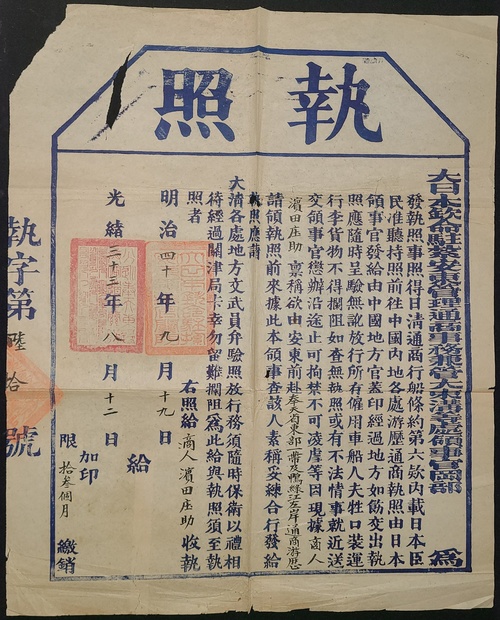 執照
大日本欽命駐紮安東管理通商事務兼管大東溝等處領事官岡部 為
發執照事照得日清通商行船條約第六款內載日本臣
民准聽持照前往中國內地各處游歷通商執照由日本
領事官發給由中國地方官蓋印經過地方如飭交出執
照應隨時呈驗無訛放行所有僱用車船人夫牲口裝運
行李貨物不得攔阻如查無執照或有不法情事就近送
交領事官懲辦沿途止可拘禁不可凌虐等因現據商人
濱田庄助 稟稱欲由安東前赴奉天省東部一帶及鴨綠江左岸通商游歷
請領執照前來據此本領事查該人素稱妥練合行發給
執照應請
大清各處地方文武員弁驗照放行務須隨時保衛以禮相
待經過關津局卡幸勿留難攔阻為此給與執照須至執
照者
右照給 商人 濱田庄助 收執
明治四十年九月十九日
光緒三十三年八月十二日
給
加印
限 拾叁個月 繳銷
執字第陸拾號